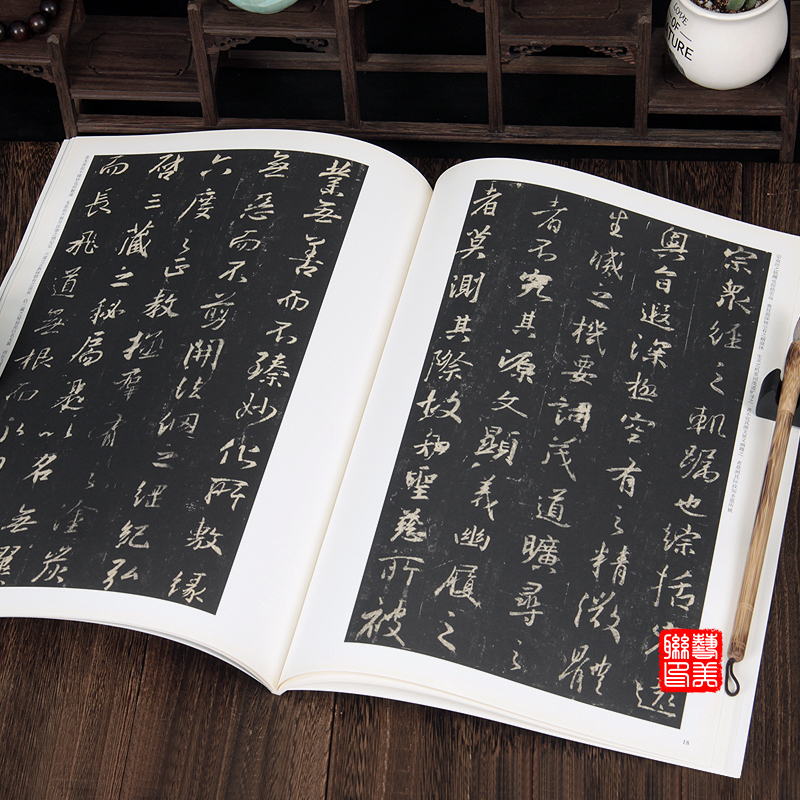 宗眾經之軌躅也綜括宏遠
奧旨遐深極空有之精微體
生滅之機要詞茂道曠尋之
者不究其源文顯義幽履之
者莫測其際故知聖慈所被
業無善而不臻妙化所敷緣
無惡而不剪開法網之綱紀弘
六度之正教拯群有之塗炭
啟三藏之秘扃是以名無翼
而長飛道無根而永
18
藝美
聯印
LOVE
OF
TURE